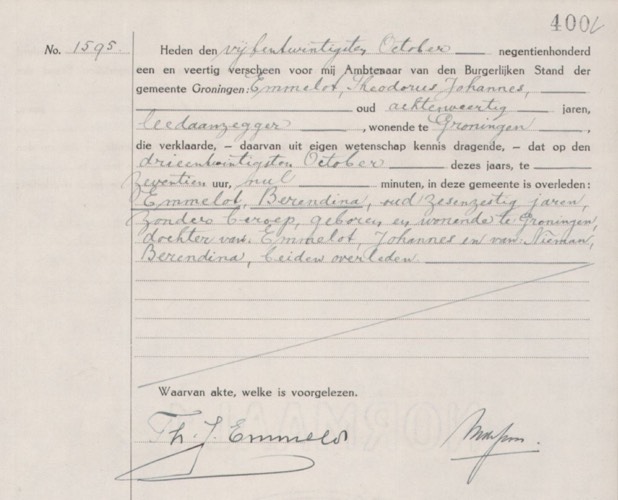 400
No. 1595. Heden den vijfentwintigsten October negentienhonderd
een en veertig verscheen voor mij Ambtenaar van den Burgerlijken Stand der
gemeente Groningen: Emmelot, Theodorus Johannes,
oud achtenveertig jaren,
leedaanzegger, wonende te Groningen,
die verklaarde, – daarvan uit eigen wetenschap kennis dragende, – dat op den
drieentwintigsten October dezes jaars, te
zeventien uur, nul minuten, in deze gemeente is overleden:
Emmelot, Berendina, oud zesenzestig jaren,
zonder beroep, geboren en wonende te Groningen,
dochter van Emmelot, Johannes en van Nieman,
Berendina, beiden overleden
Waarvan akte, welke is voorgelezen.
Th. J. Emmelot